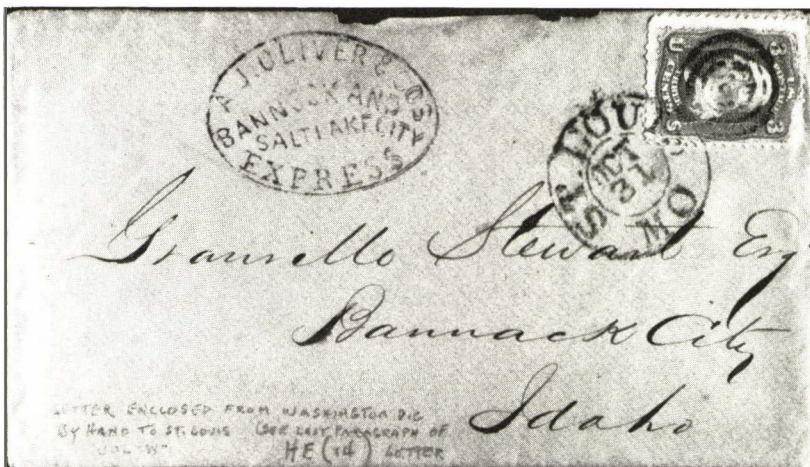 A. J. OLIVER & CO'S
BANNOCK AND
SALT LAKE CITY
EXPRESS
ST. LOUIS
OCT
31
MO
U S
3 3
Granville Stewart Esq
Bannack City
Idaho
LETTER ENCLOSED FROM WASHINGTON D.C
BY HAND TO ST. LOUIS (SEE LAST PARAGRAPH OF
HE (14) LETTER